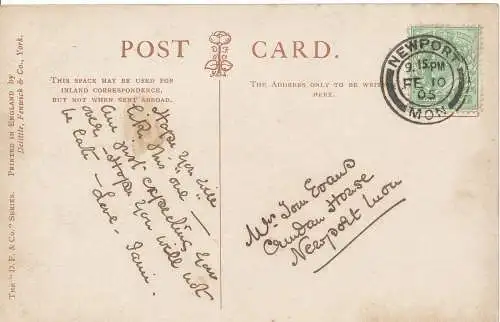 POST CARD.
THIS SPACE MAY BE USED FOR
INLAND CORRESPONDENCE,
BUT NOT WHEN SENT ABROAD.
THE ADDRESS ONLY TO BE WRITTEN
HERE.
NEWPORT
9.15 PM
FE 10
05
MON.
Hope you will
like this "one" —
Am just expecting you
over — Hope you will not
be late — Love —
Mrs Tom Evans
House
Newport Mon
THE "D. F. & Co." SERIES. PRINTED IN ENGLAND BY
Delittle, Fenwick & Co., York.